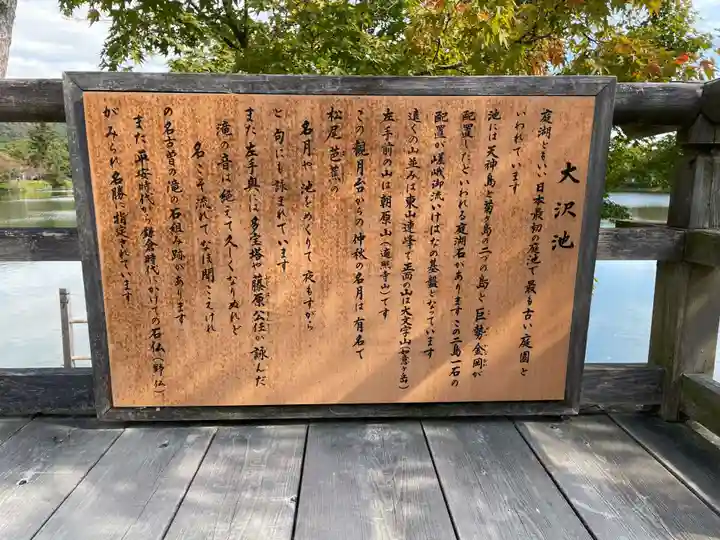 大沢池
庭湖ともいい 日本最初の庭池で最も古い庭園と
いわれています
池には天神島と菊ヶ島の二つの島と巨勢金岡が
配置したといわれる庭湖石があります この二島一石の
配置が嵯峨御流いけばなの基盤となっています
遠くの山並みは東山連峰で正面の山は大文字山(如意ヶ岳)
左手前の山は朝原山(遍照寺山)です
この観月台からの仲秋の名月は有名で
松尾芭蕉の
名月や 池をめぐりて 夜もすがら
と句にも詠まれています
また 左手奥には多宝塔や藤原公任が詠んだ
滝の音は 絶えて久しくなりぬれど
名こそ流れてなほ聞こえけれ
の名古曽の滝の石組み跡があります
また 平安時代から鎌倉時代にかけての石仏(野仏)
がみられ名勝に指定されています